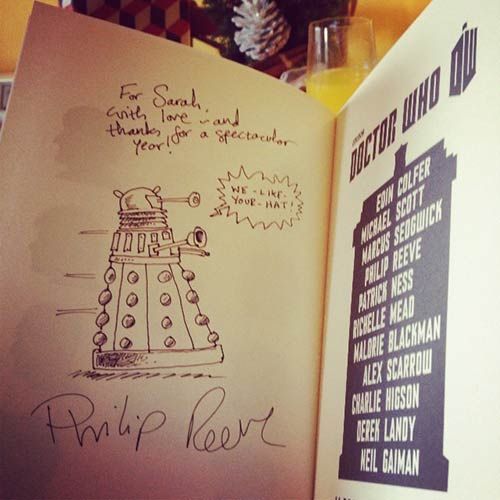 For Sarah,
with love - and
thanks, for a spectacular
year!
WE-LIKE-
YOUR-HAT!
Philip Reeve
DOCTOR WHO DW
EOIN COLFER
MICHAEL SCOTT
MARCUS SEDGWICK
PHILIP REEVE
PATRICK NESS
RICHELLE MEAD
MALORIE BLACKMAN
ALEX SCARROW
CHARLIE HIGSON
DEREK LANDY
NEIL GAIMAN